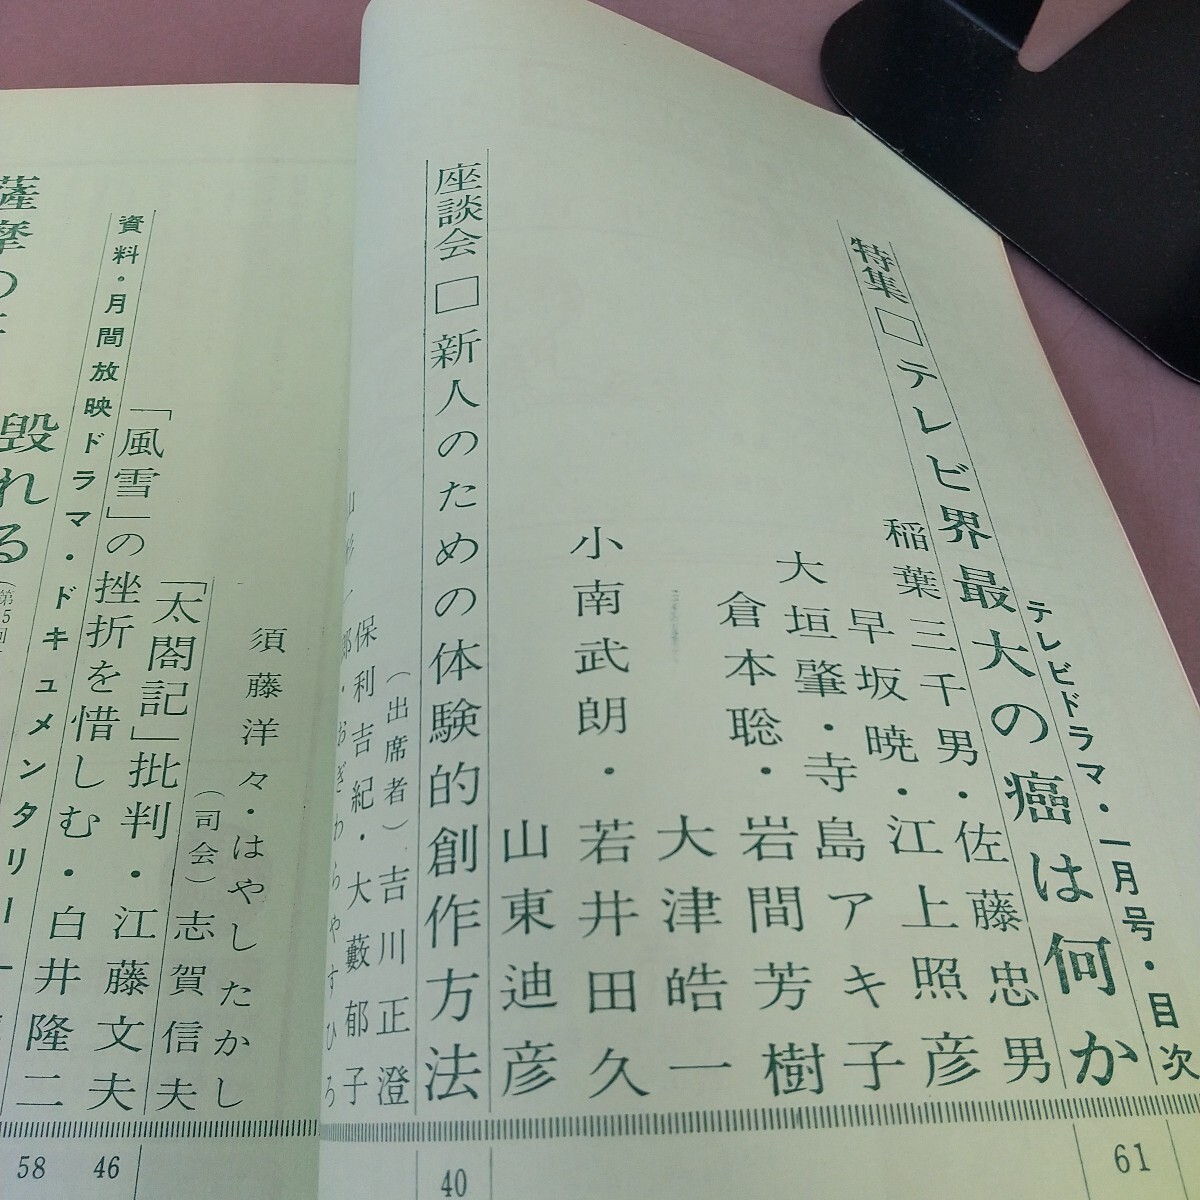 テレビドラマ・一月号・目次
特集□テレビ界最大の癌は何か
稲葉三千男・佐藤忠男
早坂暁・江上照彦
大垣肇・寺島アキ子
倉本聡・岩間芳樹
大津皓一
小南武朗・若井田久
山東迪彦
61
座談会□新人のための体験的創作方法
（出席者）吉川正澄
保利吉紀・大藪郁子
郎・おぎわらやすひろ
40
須藤洋々・はやしたかし
（司会）志賀信夫
「太閤記」批判・江藤文夫
46
「風雪」の挫折を惜しむ・白井隆二
58
資料・月間放映ドラマ・ドキュメンタリー
薩摩の
毀れる